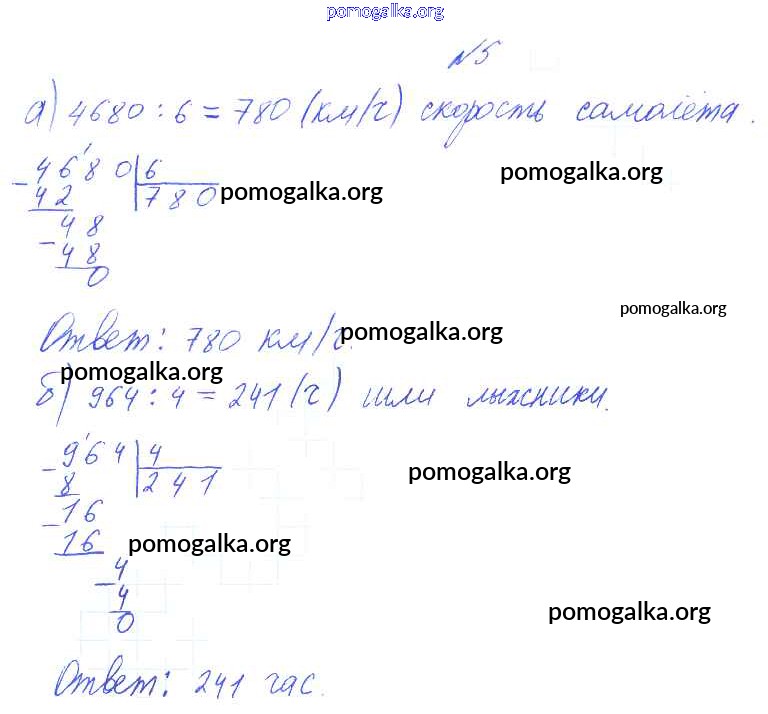 pomogalka.org
№5
а) 4680 : 6 = 780 (км/ч) скорость самолёта.
- 4680 | 6
42 | 780 pomogalka.org pomogalka.org
48
- 48
0
pomogalka.org
Ответ: 780 км/ч. pomogalka.org
pomogalka.org
б) 964 : 4 = 241 (ч) шли лыжники.
- 964 | 4
8 | 241 pomogalka.org
- 16
16 pomogalka.org
4
- 4
0
pomogalka.org
Ответ: 241 час.